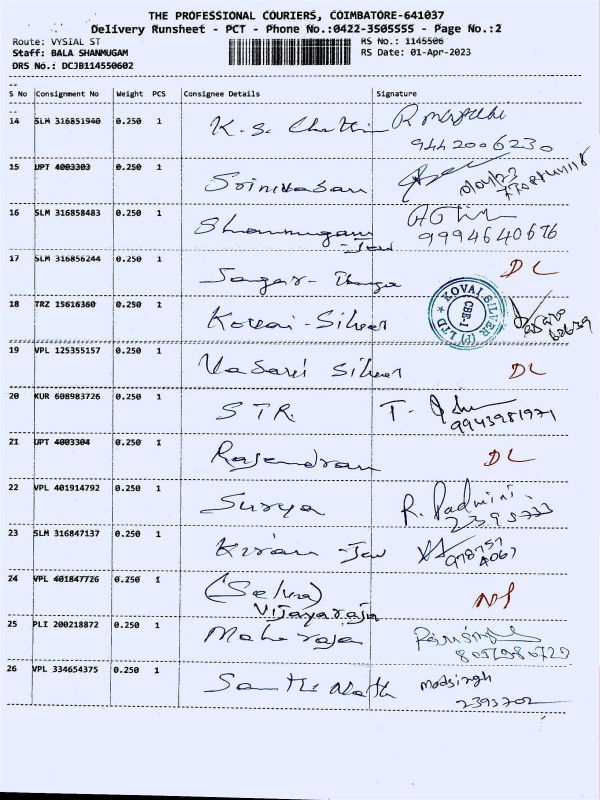 THE PROFESSIONAL COURIERS, COIMBATORE-641037
Delivery Runsheet - PCT - Phone No.:0422-3505555 - Page No.:2
Route: VYSIAL ST
RS No.: 1145506
Staff: BALA SHANMUGAM
RS Date: 01-Apr-2023
DRS No.: DCJB114550602
S No Consignment No Weight PCS Consignee Details Signature
14 SLM 316851940 0.250 1 K.S.
9442006230
15 UPT 4003303 0.250 1 Srinivasan
16 SLM 316858483 0.250 1 Shanmugam
- Jew
9994640676
17 SLM 316856244 0.250 1 Sagar - Durga DL
18 TRZ 15616360 0.250 1 Kovai - Silver KOVAI SILVER (P) LTD CBE-1
19 VPL 125355157 0.250 1 Silver DL
20 KUR 608983726 0.250 1 STR. T.
9943981971
21 UPT 4003304 0.250 1 Rajendran DL
22 VPL 401914792 0.250 1 Surya R. Padmini.
2395733
23 SLM 316847137 0.250 1 Kiran - Jew
24 VPL 401847726 0.250 1 (Selva)
Vijayaraja
25 PLI 200218872 0.250 1 Maharaja
26 VPL 334654375 0.250 1 Santhi Nath
2393702